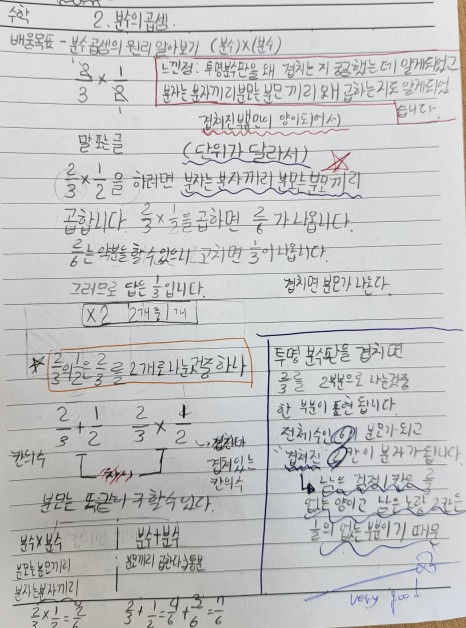 수학
2. 분수의 곱셈.
배움목표 - 분수 곱셈의 원리 알아보기 (분수)×(분수)
2/3 × 1/2
느낀점: 투명분수판을 왜 겹치는지 궁금했는데 알게되었고
분자는 분자끼리 분모는 분모끼리 왜 곱하는지도 알게되었
습니다.
겹쳐진 부분만이 양이되어서
말 또는 글
(단위가 달라서)
2/3 × 1/2을 하려면 분자는 분자끼리 분모는 분모끼리
곱합니다. 2/3 × 1/2을 곱하면 2/6가 나옵니다.
2/6는 약분을 할 수 있으니 고치면 1/3이 나옵니다.
그러므로 답은 1/3입니다.
겹치면 분모가 나온다.
×2 2개를 1개
2/3의 1/2은 2/3를 2개로 나눈것중 하나
2/3 + 1/2 2/3 × 1/2
칸의수
겹쳐있는
칸의수
분모는 똑같이 구할수 있다.
분수×분수 분수+분수
분모는분모끼리
분자는분자끼리
2/3 × 1/2 = 2/6 2/3 + 1/2 = 4/6 + 3/6 = 7/6
투명 분수판을 겹치면
2/3를 2부분으로 나눈것중
한 부분이 표현 됩니다.
전체수인 6이 분모가 되고
겹쳐진 2칸이 분자가 됩니다.
없는 양이고 남은 노랑 2칸은
늘의 없는 부분이기 때문
very good